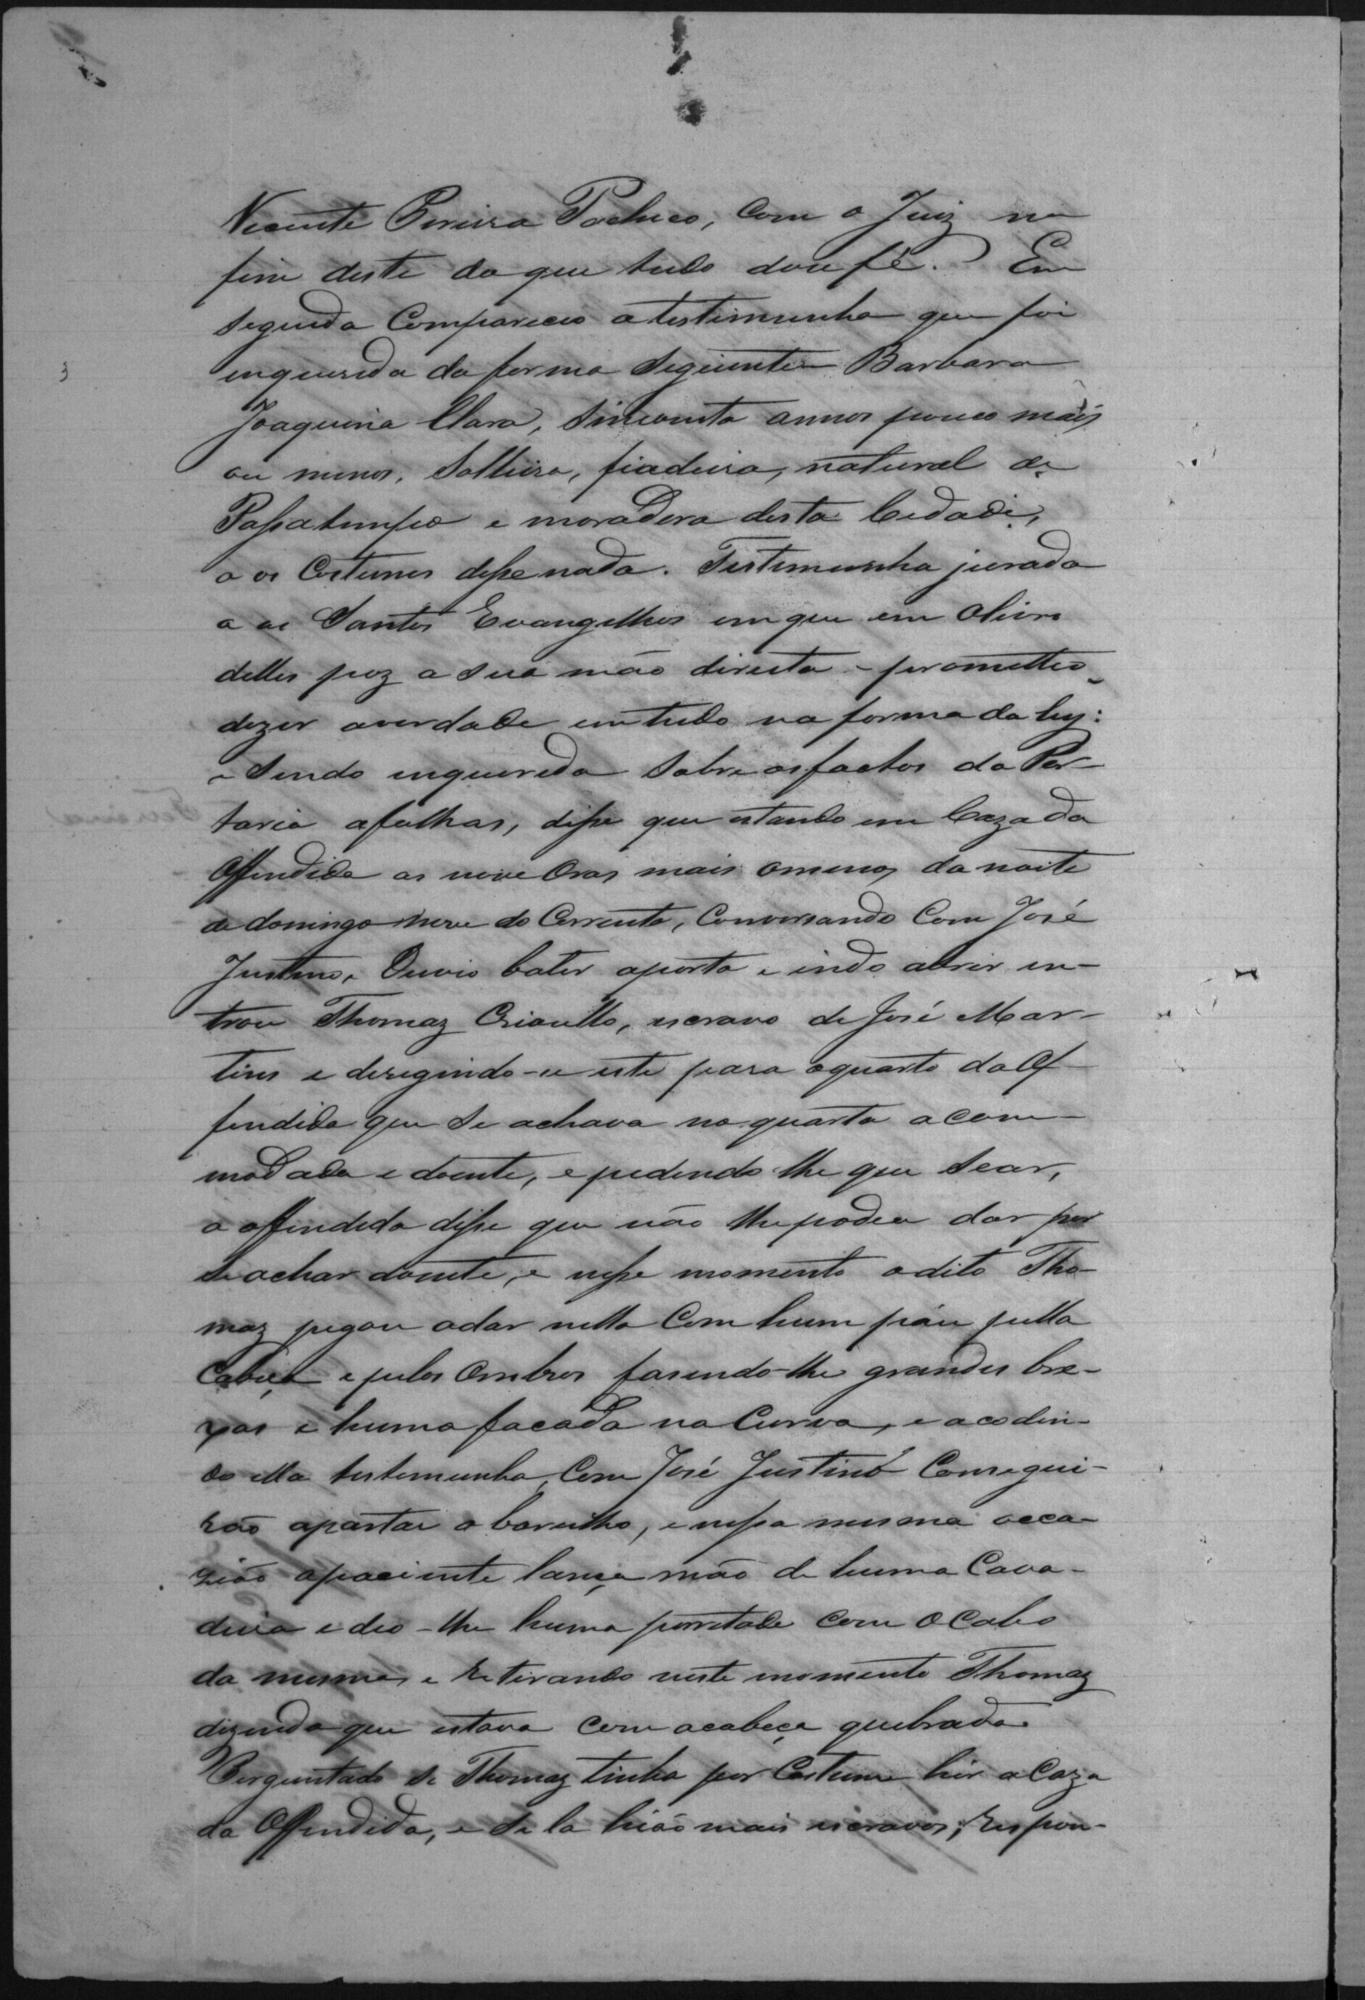 Vicente Pereira Pacheco, com o Juiz no
fim deste do que tudo dou fé. Em
seguida Compareceo a testimunha que foi
inquerida da forma seguinte Barbara
Joaquina Clara, sincoenta annos pouco mais
ou menos, Solteira, fiadeira, natural de
Passatempo e moradora desta Cidade,
a os Costumes disse nada. Testimunha jurada
a os Santos Evangelhos em que em o livro
delles poz a sua mão direita e prometteo
dizer averdade em tudo na forma da ley:
e sendo inquerida sobre os factos da Por-
taria afolhas, disse que estando em Caza da
Offendida as nove Oras mais omenos da noite
de domingo nove do Corrente, Conversando Com José
Justino, Ouvio bater aporta e indo abrir en-
trou Thomaz Crioullo, escravo de José Mar-
tins e deregindo-se este para oquarto da Of-
fendida que se achava no quarto acom-
modada e doente, e pedindo-lhe que sear,
a offendida disse que não lhe podia dar por
se achar doente, e nesse momento o dito Tho-
maz pegou adar nella Com hum páu pella
Cabeça e pelos Ombros fasendo-lhe grandes bre-
xas e huma facada na Curva, e acodin-
do ella testemunha Com José Justino Consegui-
rão apartar o barulho, e nessa mesma occa-
zião apaciente lança mão de huma Cava-
deira e deo-lhe huma porretada com o Cabo
da mesma, e retirando neste momento Thomaz
dizendo que estava com acabeça quebrada.
Perguntado se Thomaz tinha por Costume hir a Caza
da Offendida, e se la hião mais escravos; Respon-